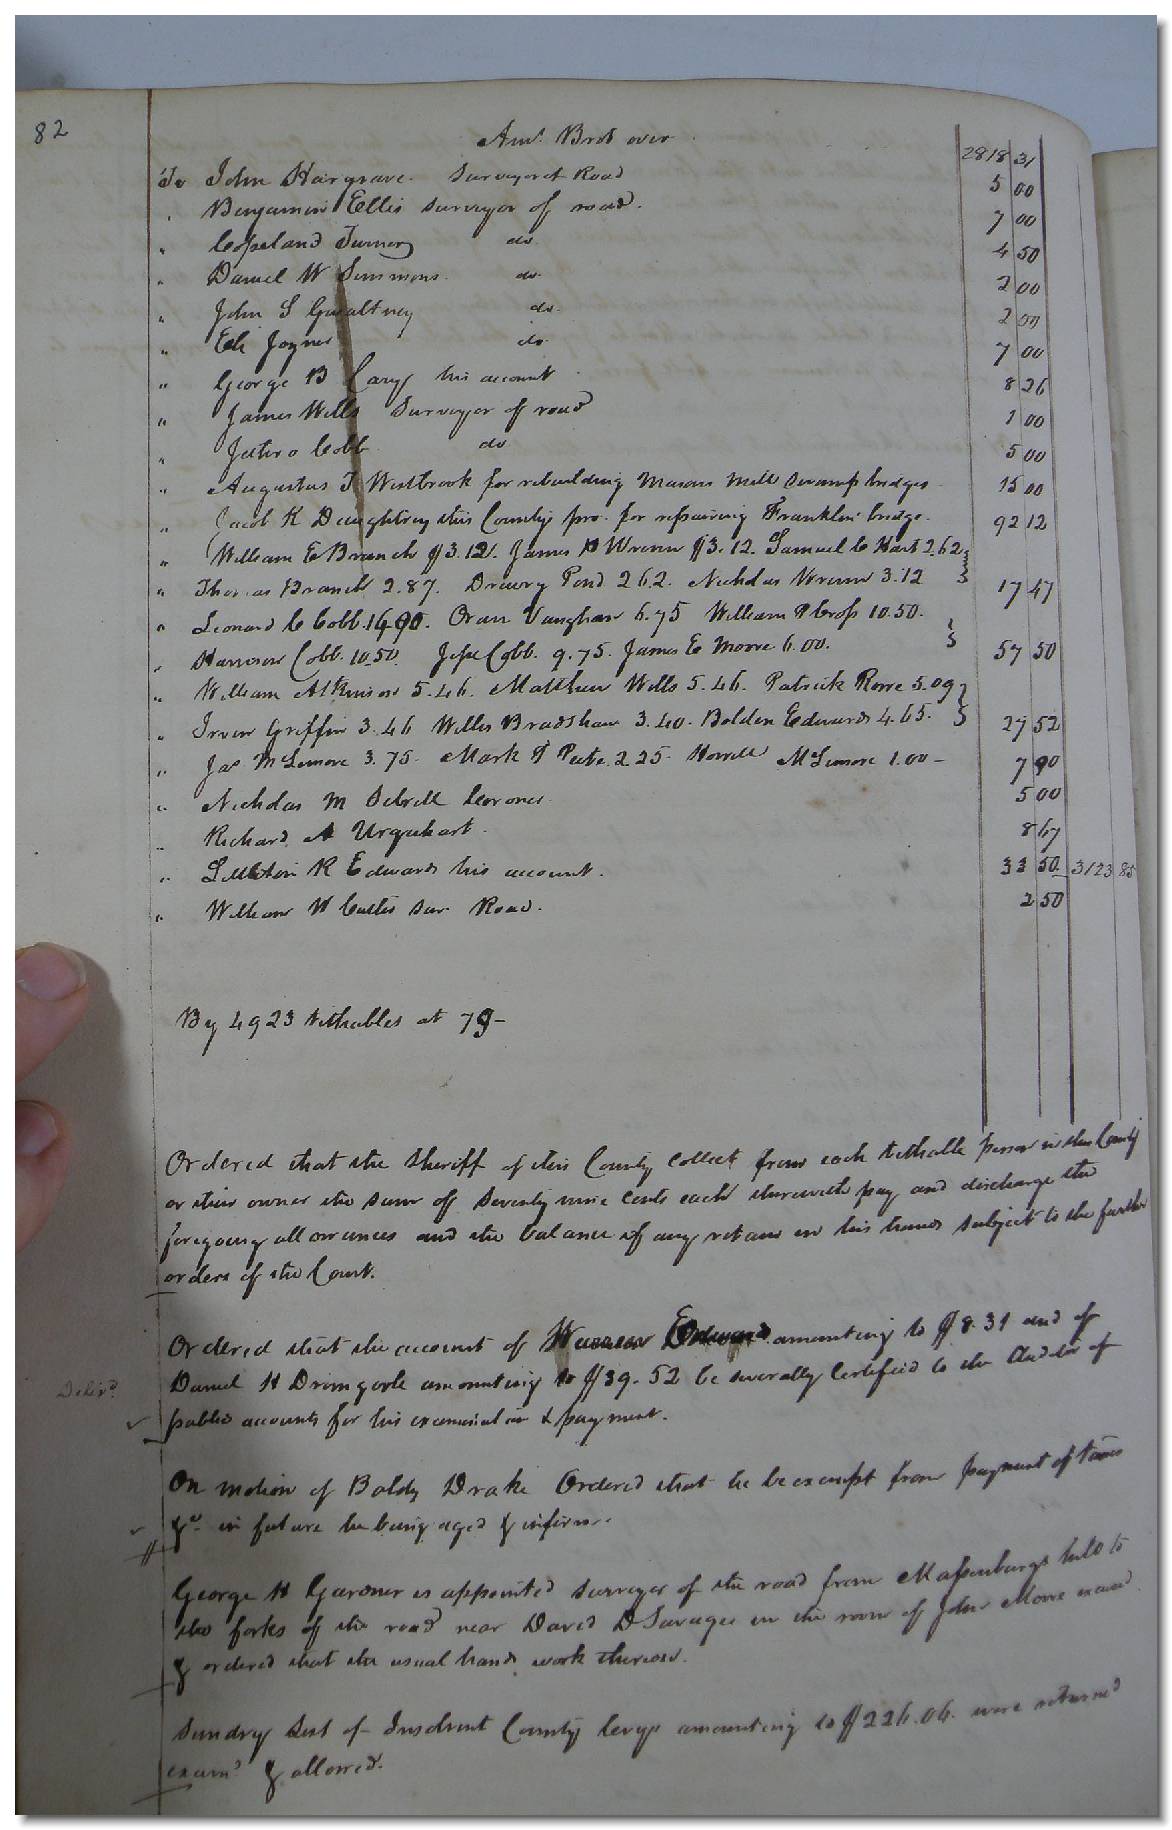 82
Amt. Brot over 2818 31
To John Hargrave. Surveyor of Road 5 00
" Benjamin Ellis Surveyor of road. 7 00
" Copeland Turner do 4 50
" Daniel W Simmons. do. 2 00
" John S Gwaltney do. 2 00
" Eli Joyner do 7 00
" George B Cary his account 8 26
" James Wells Surveyor of road 1 00
" Jethro Cobb do 5 00
" Augustus J Westbrook for rebuilding Masons Mill Swamp bridges 15 00
" Jacob K Daughtrey this County pro. for repairing Franklin bridge. 92 12
" William E Branch $3.12. James D Wrenn $3.12. Samuel C Hart 2.62
" Thomas Branch 2.87. Drewry Pond 2.62. Nicholas Wrenn 3.12 17 47
" Leonard C Cobb. Oran Vaughan 6.75 William P Crop 10.50.
" Harrison Cobb. 10.50. Jesse Cobb. 9.75. James E Moore 6.00. 57 50
" William Atkinson 5.46. Matthew Wells 5.46. Patrick Rowe 5.09
" Irvin Griffin 3.46 Willis Bradshaw 3.40. Bolden Edwards 4.65. 27 52
" Jas McLemore 3.75. Mark P Pate 2.25. Howell McLemore 1.00 - 7 00
" Nicholas M Sebrell Coroner 5 00
" Richard A Urquhart. 8 67
" Littleton R Edwards his account. 33 50 3123 85
" William H Cutler Sur Road. 2 50
By 4923 tithables at 79-
Ordered that the Sheriff of this County collect from each tithable person in this County
or their owner the sum of Seventy nine Cents each therewith pay and discharge the
foregoing allowances and the balance if any retain in his hands Subject to the further
orders of the Court.
Ordered that the account of Edwards amounting to $8.31 and of
Delivd. Daniel H Drimgoole amounting to $39.52 be severally Certified to the Auditor of
public accounts for his examination & payment.
On motion of Baldy Drake Ordered that he be exempt from payment of taxes
&c in future he being aged & infirm.
George H Gardner is appointed Surveyor of the road from Massenburgs hill to
the forks of the road near David D Savages in the room of John Moore
& ordered that the usual hands work thereon.
Sundry List of Insolvent County levys amounting to $226.06. were returned
examd & allowed.